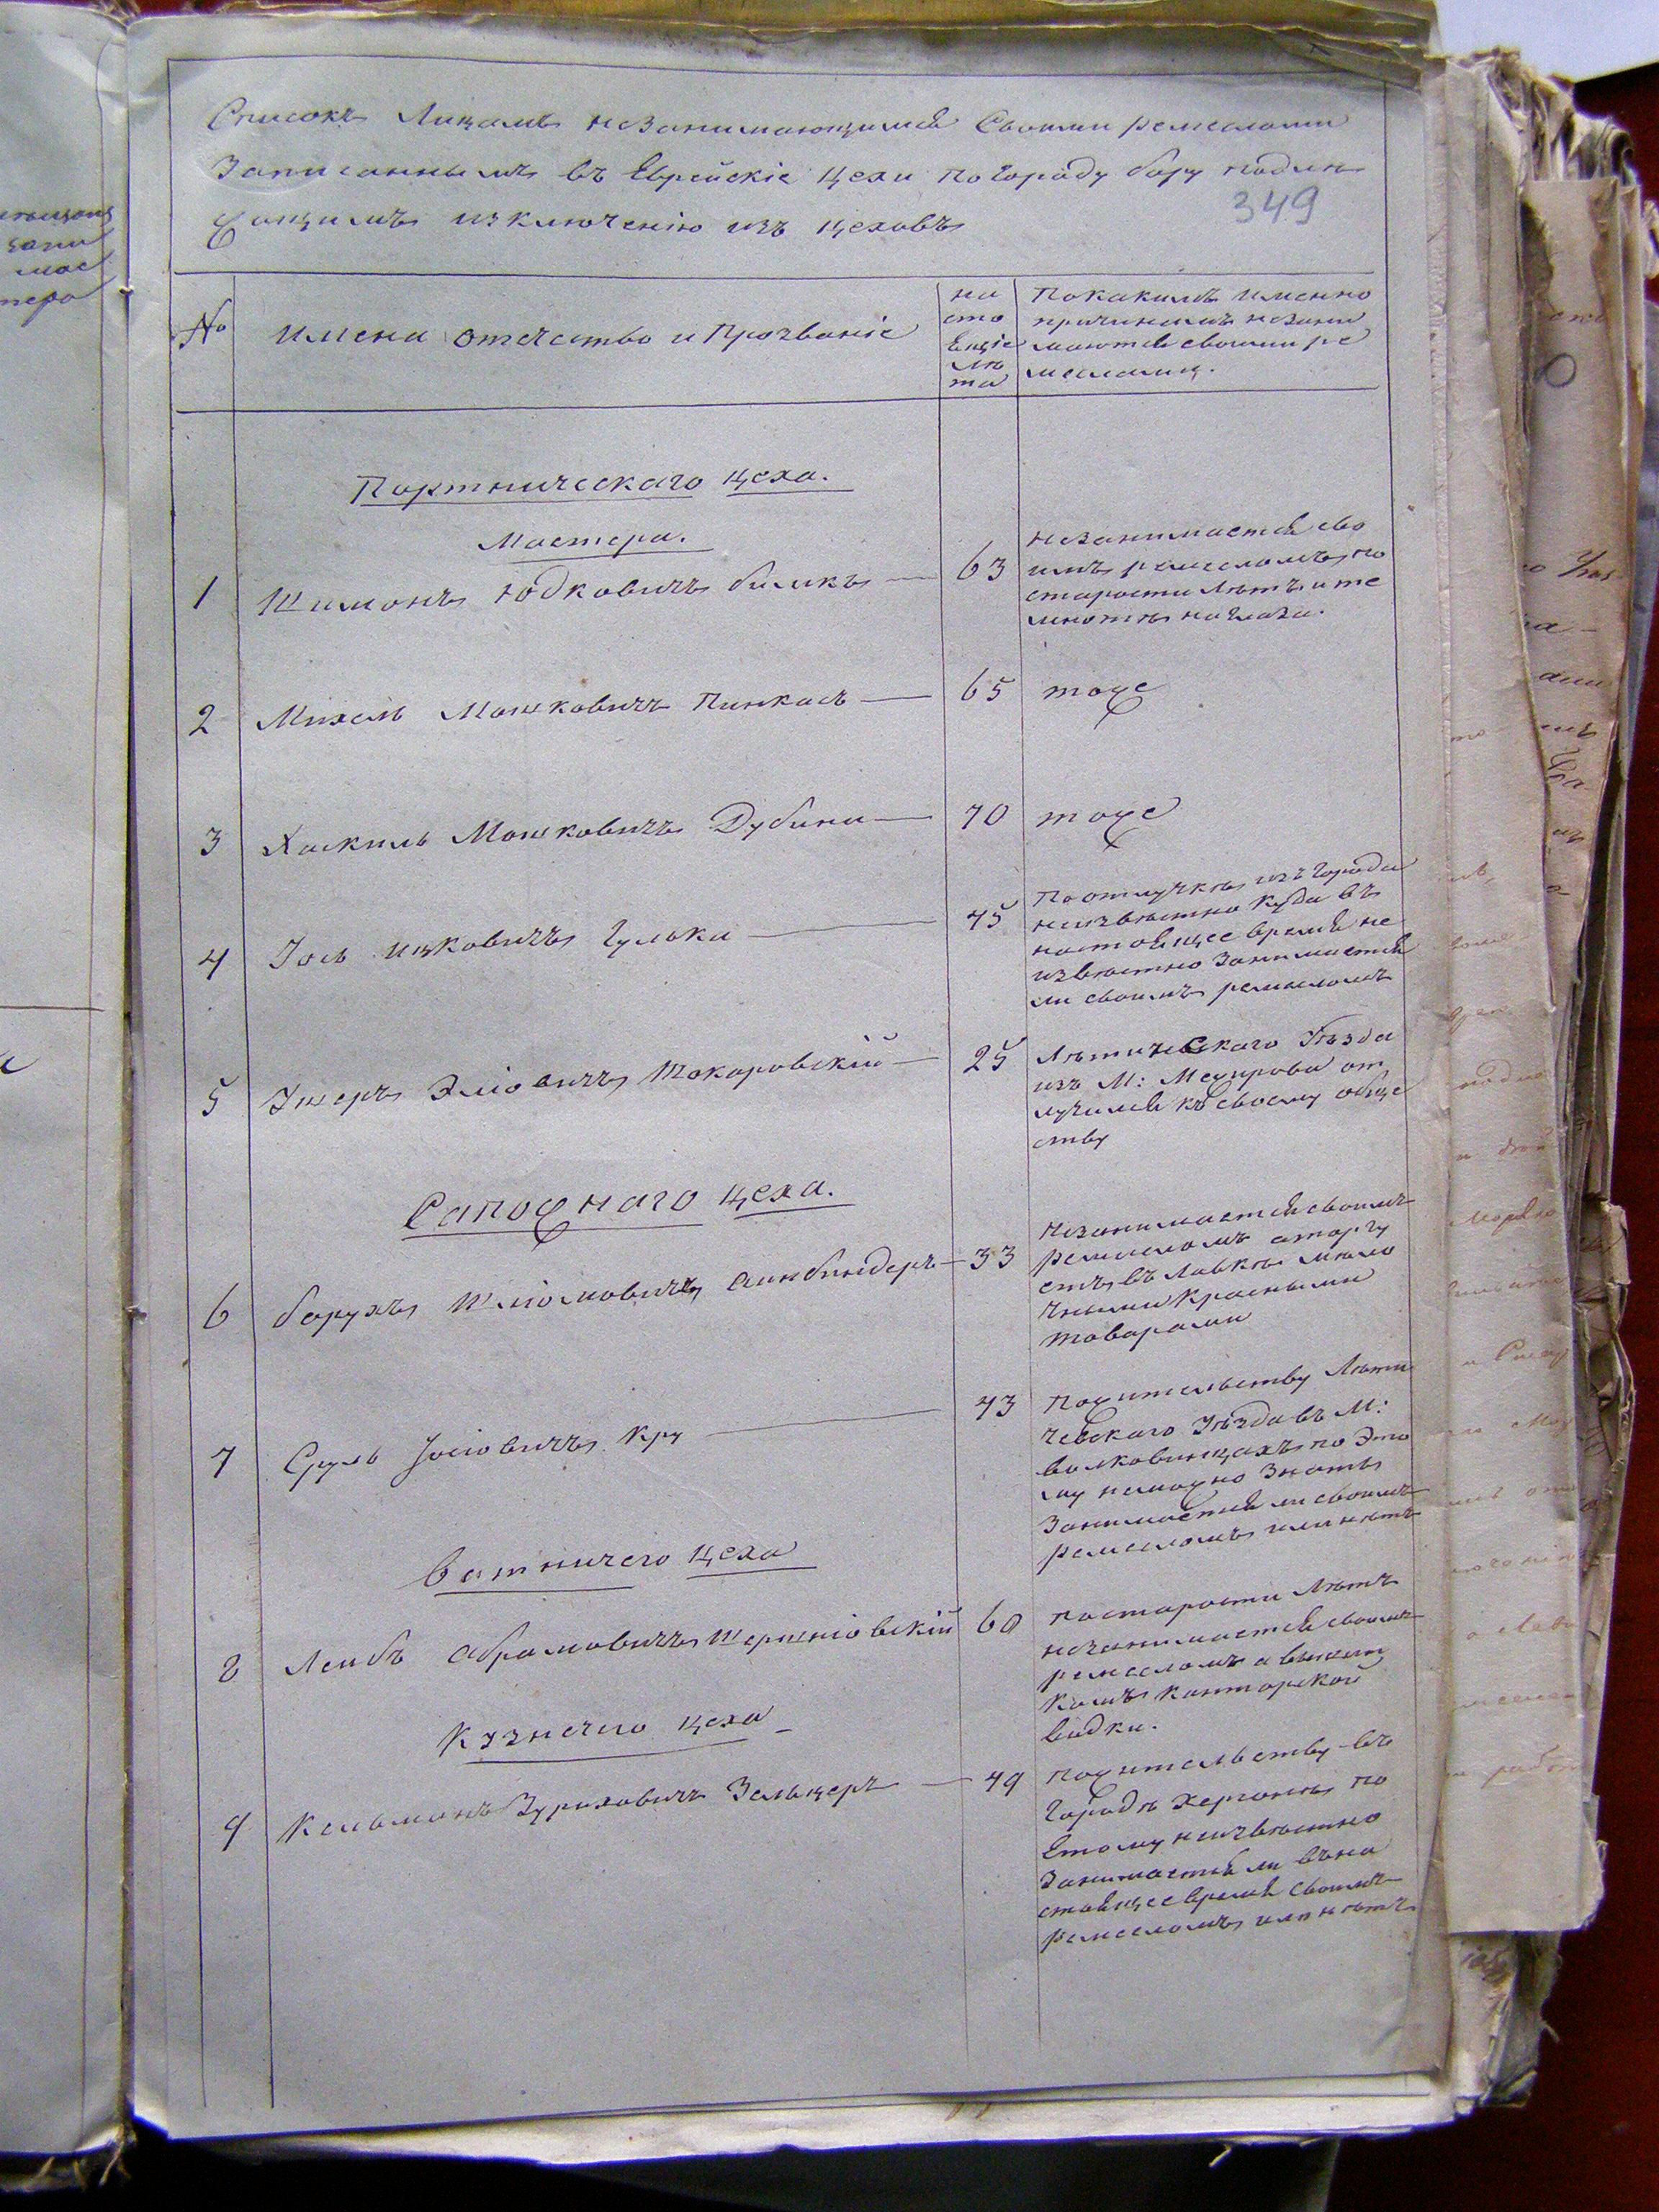 Списокъ Лицамъ незанимающимся Своими ремеслами
Записаннымъ въ Еврейскіе цехи по Городу бару подле
жащимъ изключенію изъ цеховъ
349
№
имена отечество и Прозваніе
на
сто
ящіе
лѣ
та
По какимъ именно
причинамъ незани
маются своими ре
меслами.
Портническаго цеха.
Мастера.
1 Шимонъ Юдковичъ биликъ — 63
незанимается сво
имъ ремесломъ по
старости лѣтъ и те
мнотѣ на глаза.
2 Михель Мошковичъ Пинкасъ — 65 тоже
3 Хаскиль Мошковичъ Дубини — 70 тоже
4 Іось ицковичъ Гулька — 45
По отлучкѣ изъ Города
неизвѣстно куда въ
настоящее время не
извѣстно Занимается
ли своимъ ремесломъ
5 Ушеръ Эліовичъ Токаровскій — 25
Лѣтичевскаго Уѣзда
изъ М: Межирова от
лучился къ своему обще
ству
Сапожнаго цеха.
6 борухъ Шліомовичъ аинбиндеръ — 33
незанимается своимъ
ремесломъ а торгу
етъ въ Лавкѣ мѣло
чными Красными
товарами
7 Сруль Іосіовичъ Кру — 43
По жительству Лѣти
чевскаго Уѣзда въ М:
волковинцахъ по Это
му неможно Знать
Занимается ли своимъ
ремесломъ или нѣтъ
ватничего цеха
8 Лейбъ Абрамовичъ Шершніовскій 60
По старости Лѣтъ
незанимается своимъ
ремесломъ а
канторской
водки.
Кузнечего цеха
9 Кельманъ Зуриховичъ Зельцеръ — 49
По жительству въ
Городѣ Херсонѣ по
Етому неизвѣстно
Занимается ли въ на
стоящее время Своимъ
ремесломъ или нѣтъ